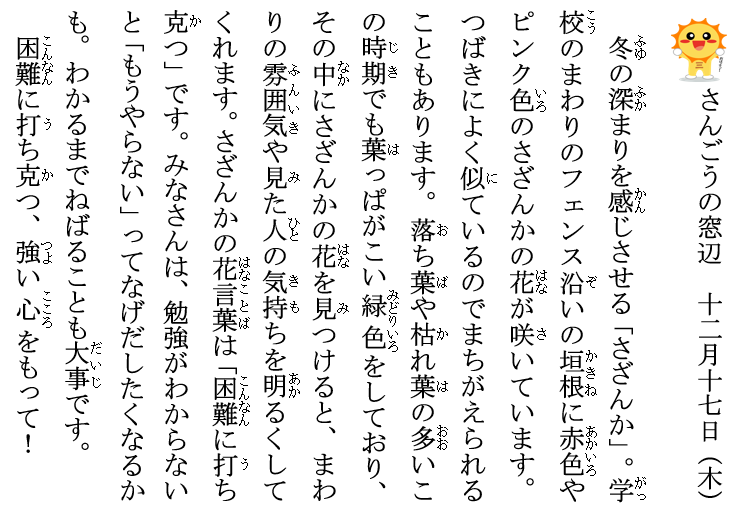 さんごうの窓辺　十二月十七日（木）
冬の深まりを感じさせる「さざんか」。学
校のまわりのフェンス沿いの垣根に赤色や
ピンク色のさざんかの花が咲いています。
つばきによく似ているのでまちがえられる
こともあります。落ち葉や枯れ葉の多いこ
の時期でも葉っぱがこい緑色をしており、
その中にさざんかの花を見つけると、まわ
りの雰囲気や見た人の気持ちを明るくして
くれます。さざんかの花言葉は「困難に打ち
克つ」です。みなさんは、勉強がわからない
と「もうやらない」ってなげだしたくなるか
も。わかるまでねばることも大事です。
困難に打ち克つ、強い心をもって！